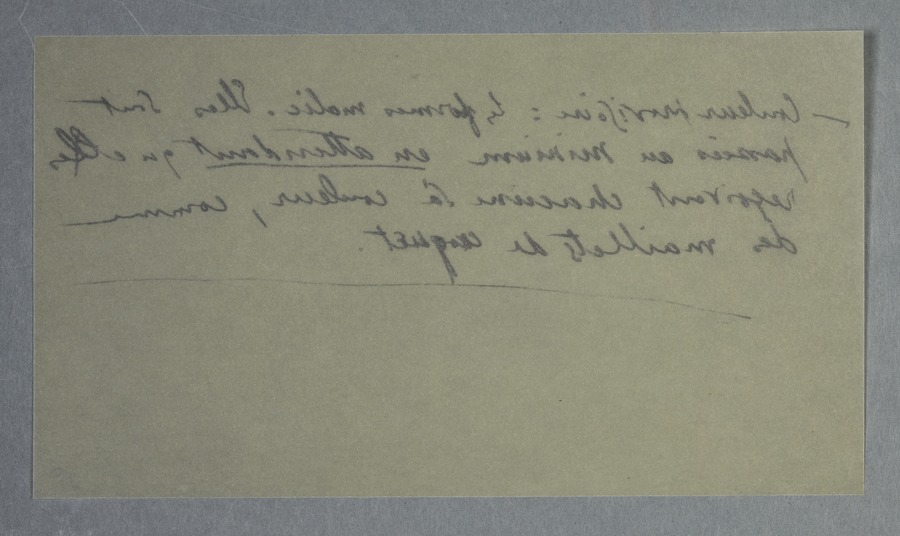 — Couleur provisoire : Les formes malic. Elles sont
passées au minium en attendant qu'elles
reçoivent chacune sa couleur, comme
des maillets de croquet.